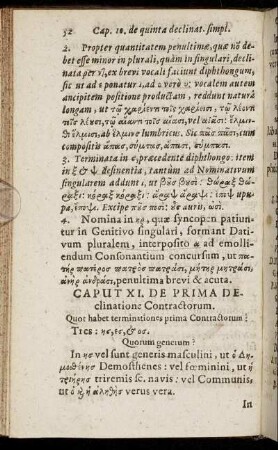 52 Cap. 10. de quinta declinat. simpl.
2. Propter quantitatem penultimæ, quæ nō de-
bet esse minor in plurali, quàm in singulari, decli-
nata per ν, ex brevi vocali faciunt diphthongum,
sic ut ad ε ponatur ι, ad ο verò υ: vocalem autem
ancipitem positione productam, reddunt naturâ
longam, ut
cum-
compositis ἅπας, σύμπας, ἅπασι, σύμπασι.
3. Terminata in ς, præcedente diphthongo: item
in ξ & ψ desinentia, tantùm ad Nominativum
singularem addunt ι, ut βοῦς βουσί: θώραξ θώ-
ραξι: κόραξ κόραξι: ἄραψ ἄραψι:
Excipe πῦς ποσί: ὖς αὐτὶ, ὠσί.
4. Nomina in ηρ, quæ syncopen patiun-
tur in Genitivo singulari, formant Dati-
vum pluralem, interposito α ad emollien-
dum Consonantium concursum, ut πα-
τὴρ πατέρος πατρὸς πατράσι, μήτηρ μητράσι,
ἀνὴρ ἀνδράσι, penultima brevi & acuta.
CAPUT XI. DE PRIMA DE-
clinatione Contractorum.
Quot habet terminationes prima Contractorum?
Tres: ης, ες, & ος.
Quorum generum?
In ης vel sunt generis masculini, ut ὁ Δη-
μοσθένης Demosthenes: vel fœminini, ut ἡ
τριήρης triremis sc. navis: vel Communis,
ut ὁ ἡ ἀληθὴς verus vera.
In